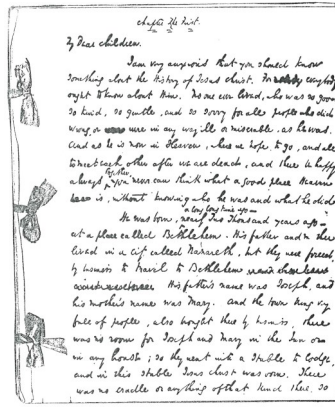 Chapter the First.
My Dear Children,
I am very anxious that you should know
something about the History of Jesus Christ. For everybody
ought to know about Him. No one ever lived, who was so good,
so kind, so gentle, and so sorry for all people who did
wrong, or were in any way ill or miserable, as he was.
And as he is now in Heaven, where we hope to go, and all
to meet each other after we are dead, and there be happy
always together, you never can think what a good place Heaven
is, without knowing who he was and what he did.
He was born, a long long time ago – nearly Two Thousand years ago –
at a place called Bethlehem. His father and m
lived in a city called Nazareth, but they were forced,
by business to travel to Bethlehem
His father's name was Joseph, and
his mother's name was Mary. And the town being very
full of people, also brought there by business, there
was no room for Joseph and Mary in the Inn or
in any house; so they went into a Stable to lodge,
and in this stable Jesus Christ was born. There
was no cradle or anything of that kind there, so